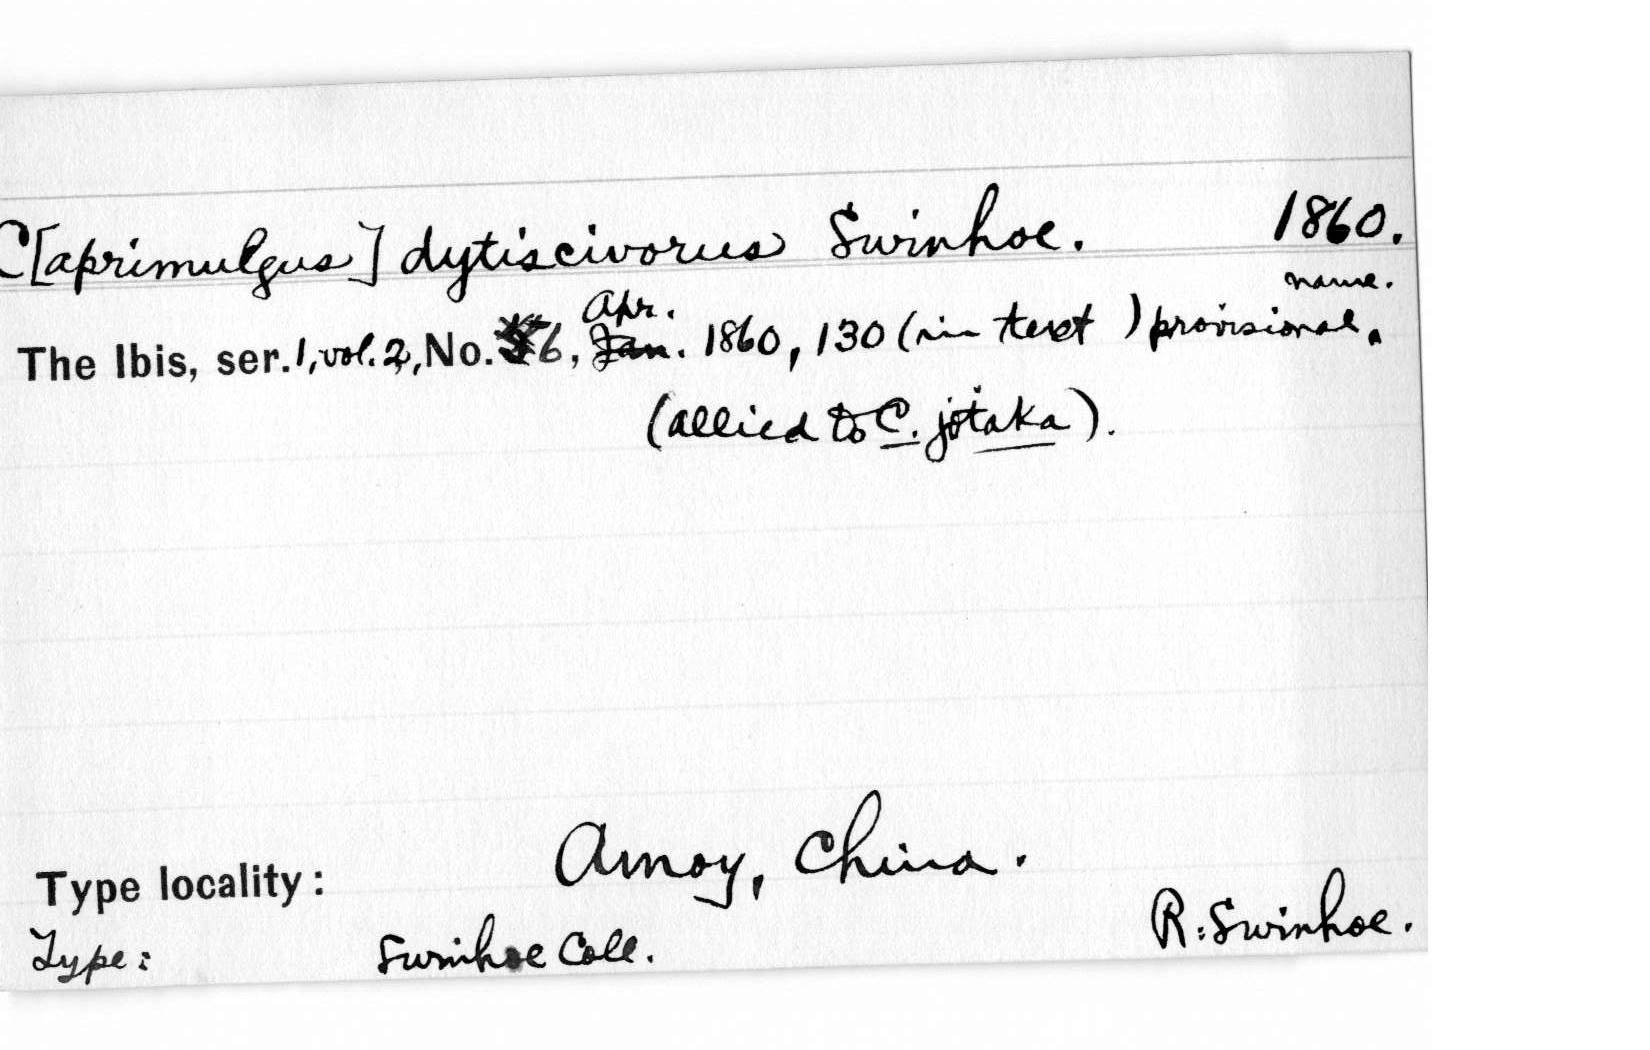 C[aprimulgus] dytiscivorus Swinhoe. 1860.
name.
Apr.
The Ibis, ser. 1, vol. 2, No. 6, Jan. 1860, 130 (in text) provisional.
(allied to C. jotaka).
Type locality: Amoy, China.
Type: Swinhoe Coll. R. Swinhoe.